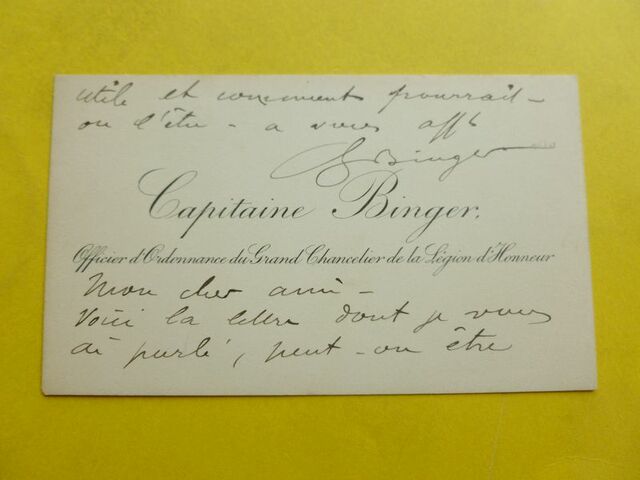 utile et comment pourrait-
on l'être - a vous afft
GBinger
Capitaine Binger,
Officier d'Ordonnance du Grand Chancelier de la Légion d'Honneur
Mon cher ami -
Voici la lettre dont je vous
ai parlé, peut-on être